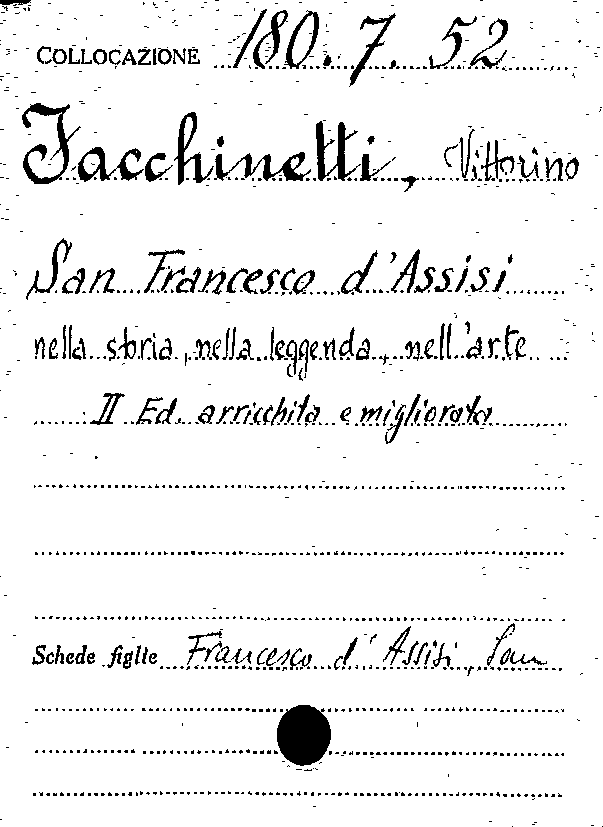 COLLOCAZIONE 180.7.52
Facchinetti, Vittorino
San Francesco d'Assisi
nella storia, nella leggenda, nell'arte
II Ed. arricchita e migliorata
Schede figlie Francesco d'Assisi, San